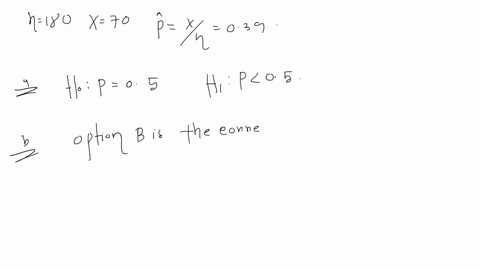 n=180 X=70 p̂ = x/n = 0.39.
a H₀: P = 0.5 H₁: P < 0.5.
b option B is the conne